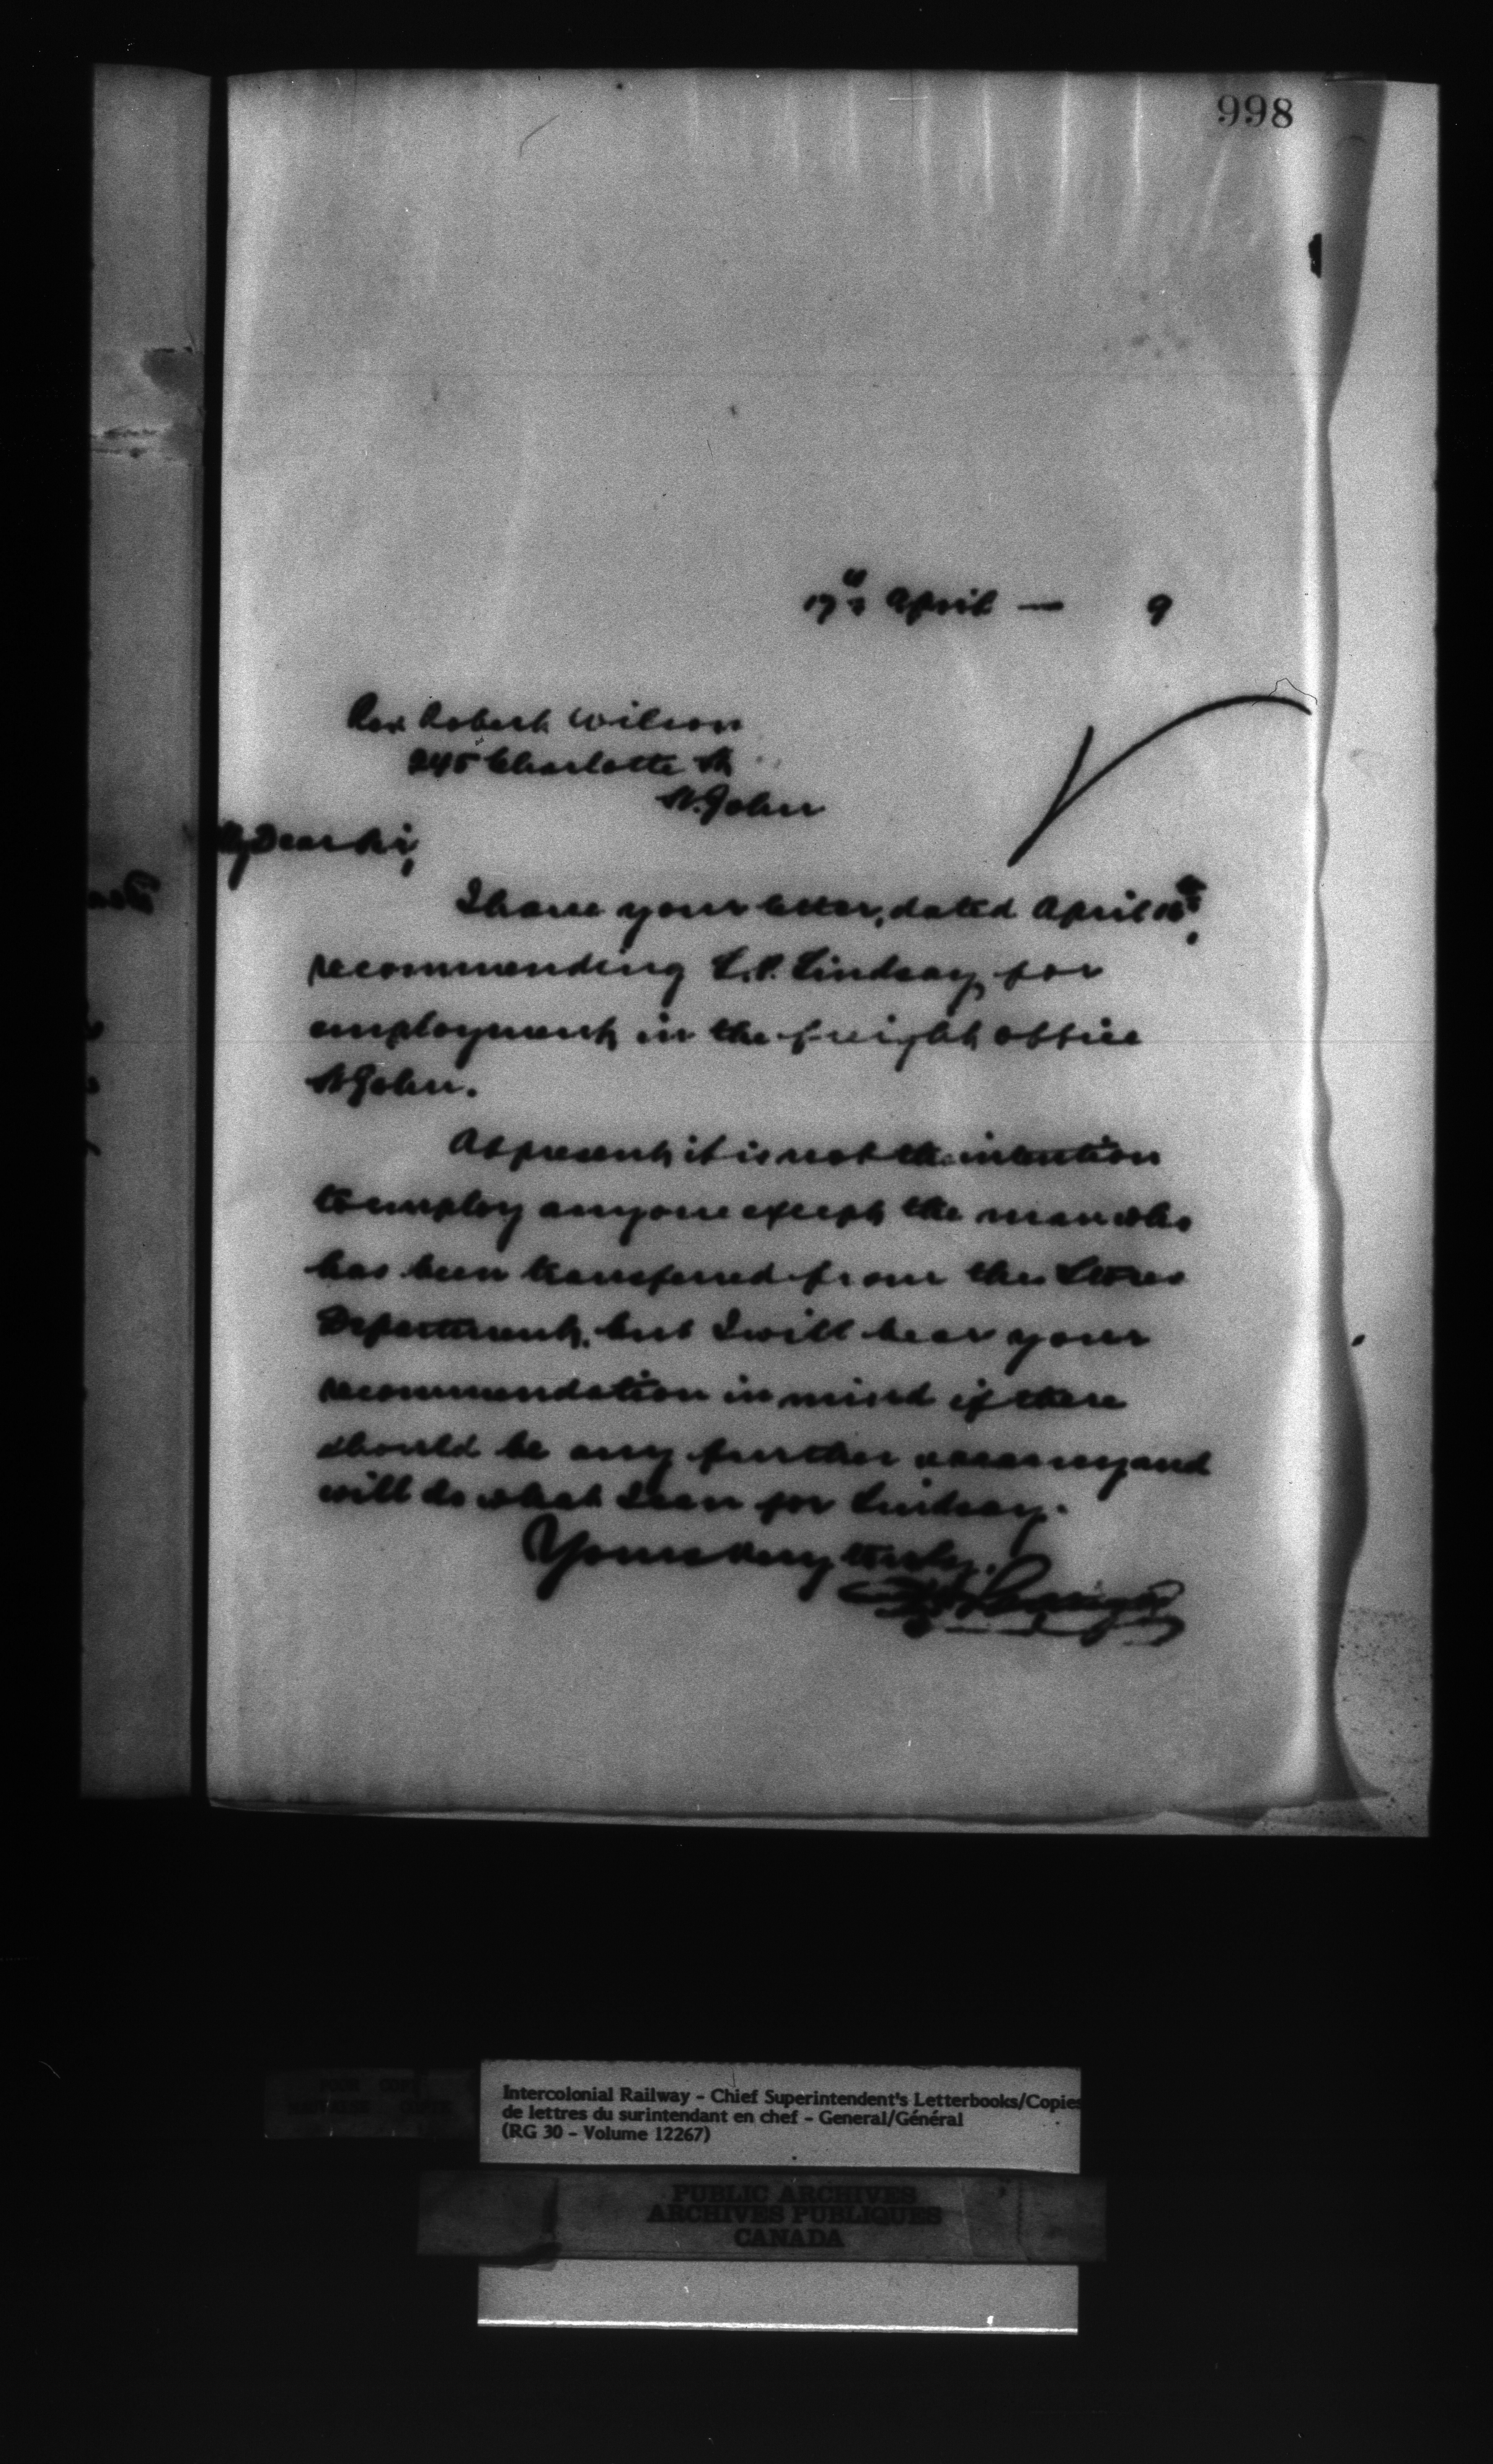 998
17th April — 9
Rev Robert Wilson
245 Charlotte St
St. John
My Dear Sir,
I have your letter, dated April 16th,
recommending L.P. Lindsay, for
employment in the freight office
St John.
At present it is not the intention
to employ anyone except the man who
has been transferred from the Stores
Department, but I will bear your
recommendation in mind if there
should be any further vacancy and
will do what I can for Lindsay.
Yours very truly,
Intercolonial Railway - Chief Superintendent's Letterbooks/Copies
de lettres du surintendant en chef - General/Général
(RG 30 - Volume 12267)
PUBLIC ARCHIVES
ARCHIVES PUBLIQUES
CANADA